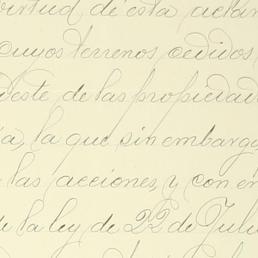 virtud de esta aclar
cuyos terrenos cedidos
deste de las propiedad
a, la que sin embargo
las acciones, y con
de la ley de 22 de Juli